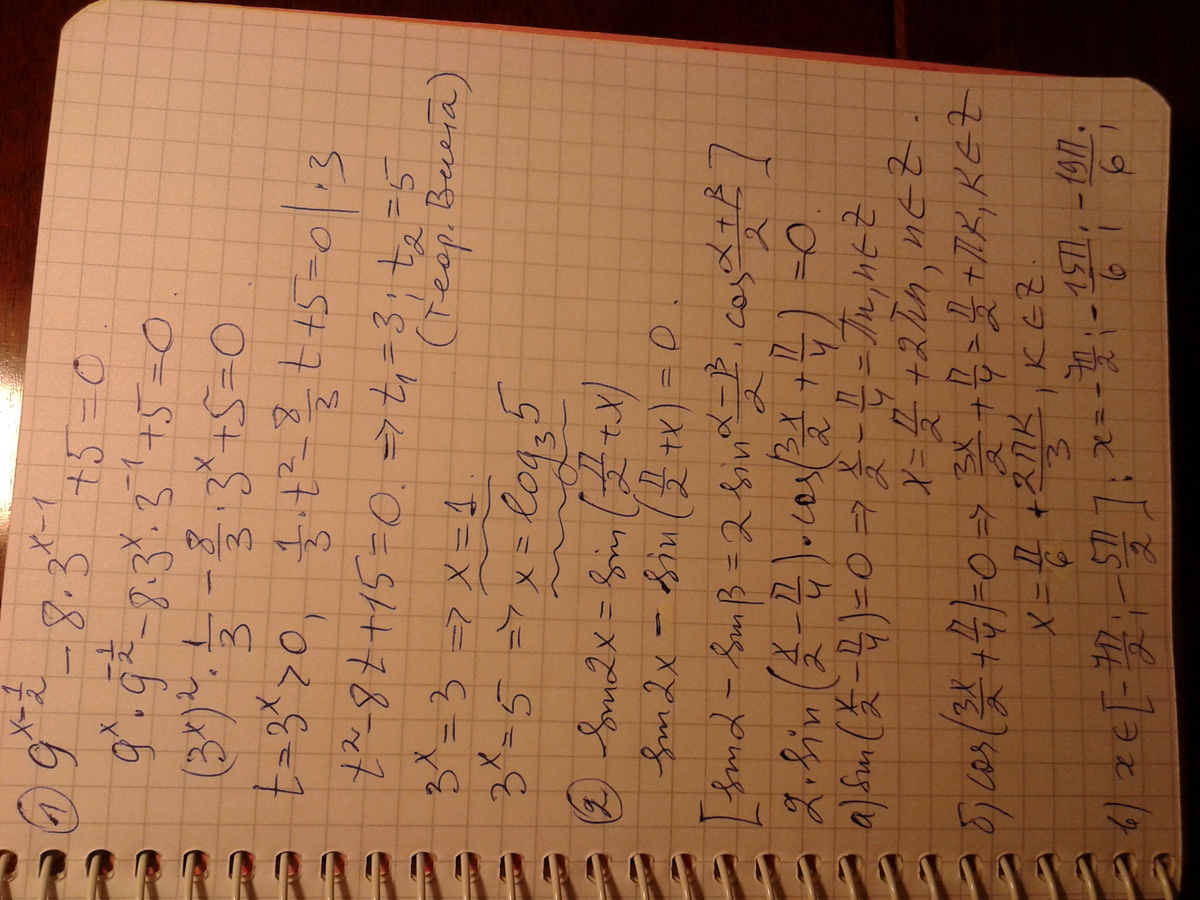 ① 9^(x-1/2) - 8·3^(x-1) + 5 = 0
9^x · 9^(-1/2) - 8·3^x·3^(-1) + 5 = 0
(3^x)² · 1/3 - 8/3 · 3^x + 5 = 0
t = 3^x > 0, 1/3 · t² - 8/3 t + 5 = 0 | ·3
t² - 8t + 15 = 0. ⇒ t₁ = 3; t₂ = 5
(теор. Виета)
3^x = 3 ⇒ x = 1.
3^x = 5 ⇒ x = log₃5
② sin2x = sin(π/2 + x)
sin2x - sin(π/2 + x) = 0.
[sinα - sinβ = 2 sin (α-β)/2 · cos (α+β)/2]
2·sin(x/2 - π/4)·cos(3x/2 + π/4) = 0.
а) sin(x/2 - π/4) = 0 ⇒ x/2 - π/4 = πn, n∈Z
x = π/2 + 2πn, n∈Z.
б) cos(3x/2 + π/4) = 0 ⇒ 3x/2 + π/4 = π/2 + πк, к∈Z
x = π/6 + 2πк/3, к∈Z.
в) x ∈ [-7π/2; -5π/2]: x = -7π/2; -15π/6; -19π/6;